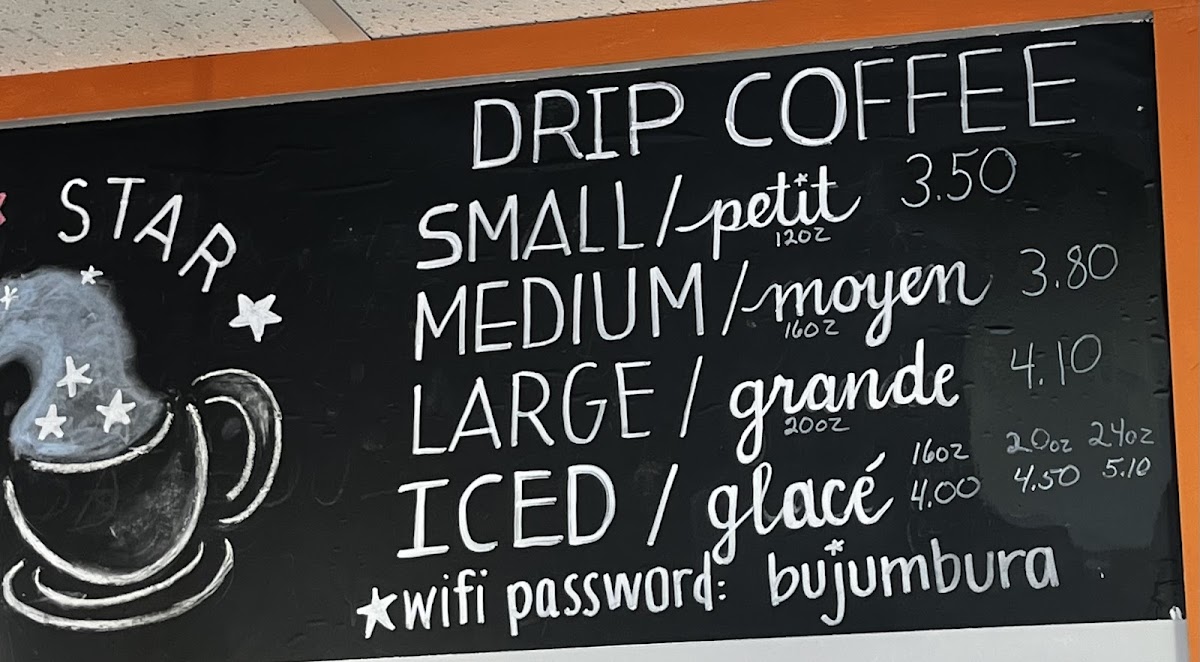 STAR
DRIP COFFEE
SMALL/petit 3.50
12oz
MEDIUM/moyen 3.80
16oz
LARGE/grande 4.10
20oz
ICED/glacé 16oz 20oz 24oz
4.00 4.50 5.10
wifi password: bujumbura